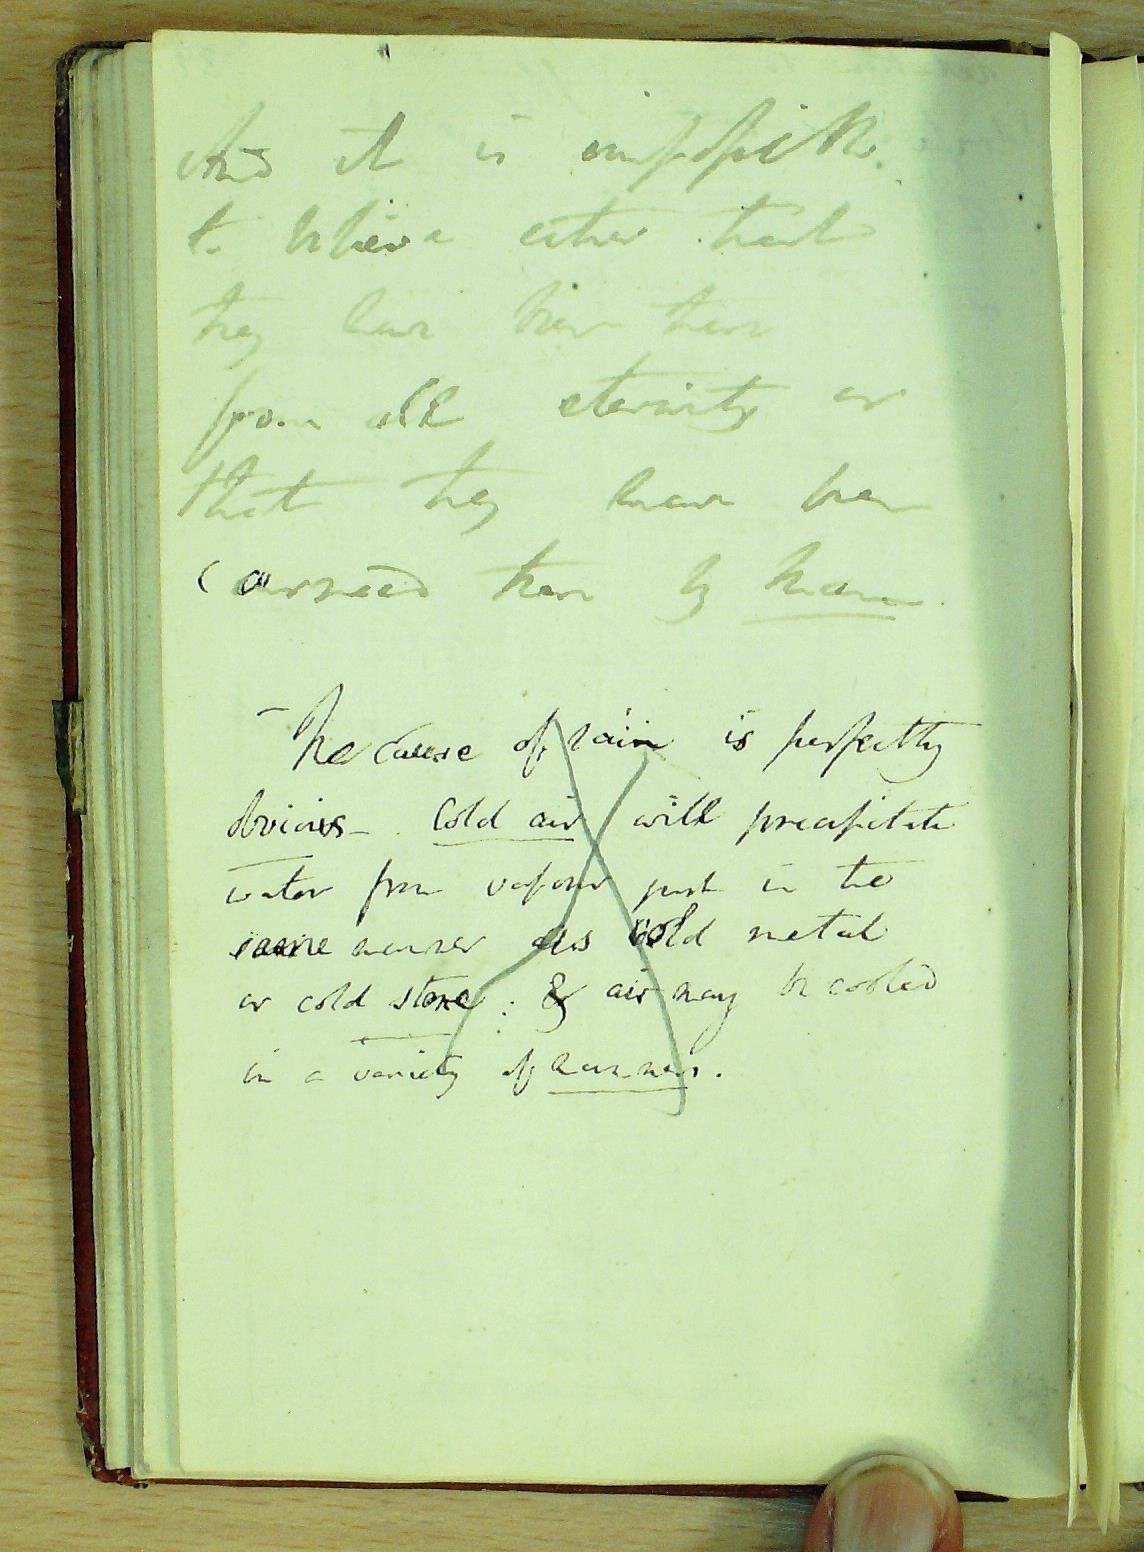 And it is impossible
to believe either that
they have been there
from all eternity or
that they have been
carried there by
The cause of rain is perfectly
obvious - Cold air will precipitate
water from vapour just in the
same manner as cold metal
or cold stone : & air may be cooled
in a variety of manners.